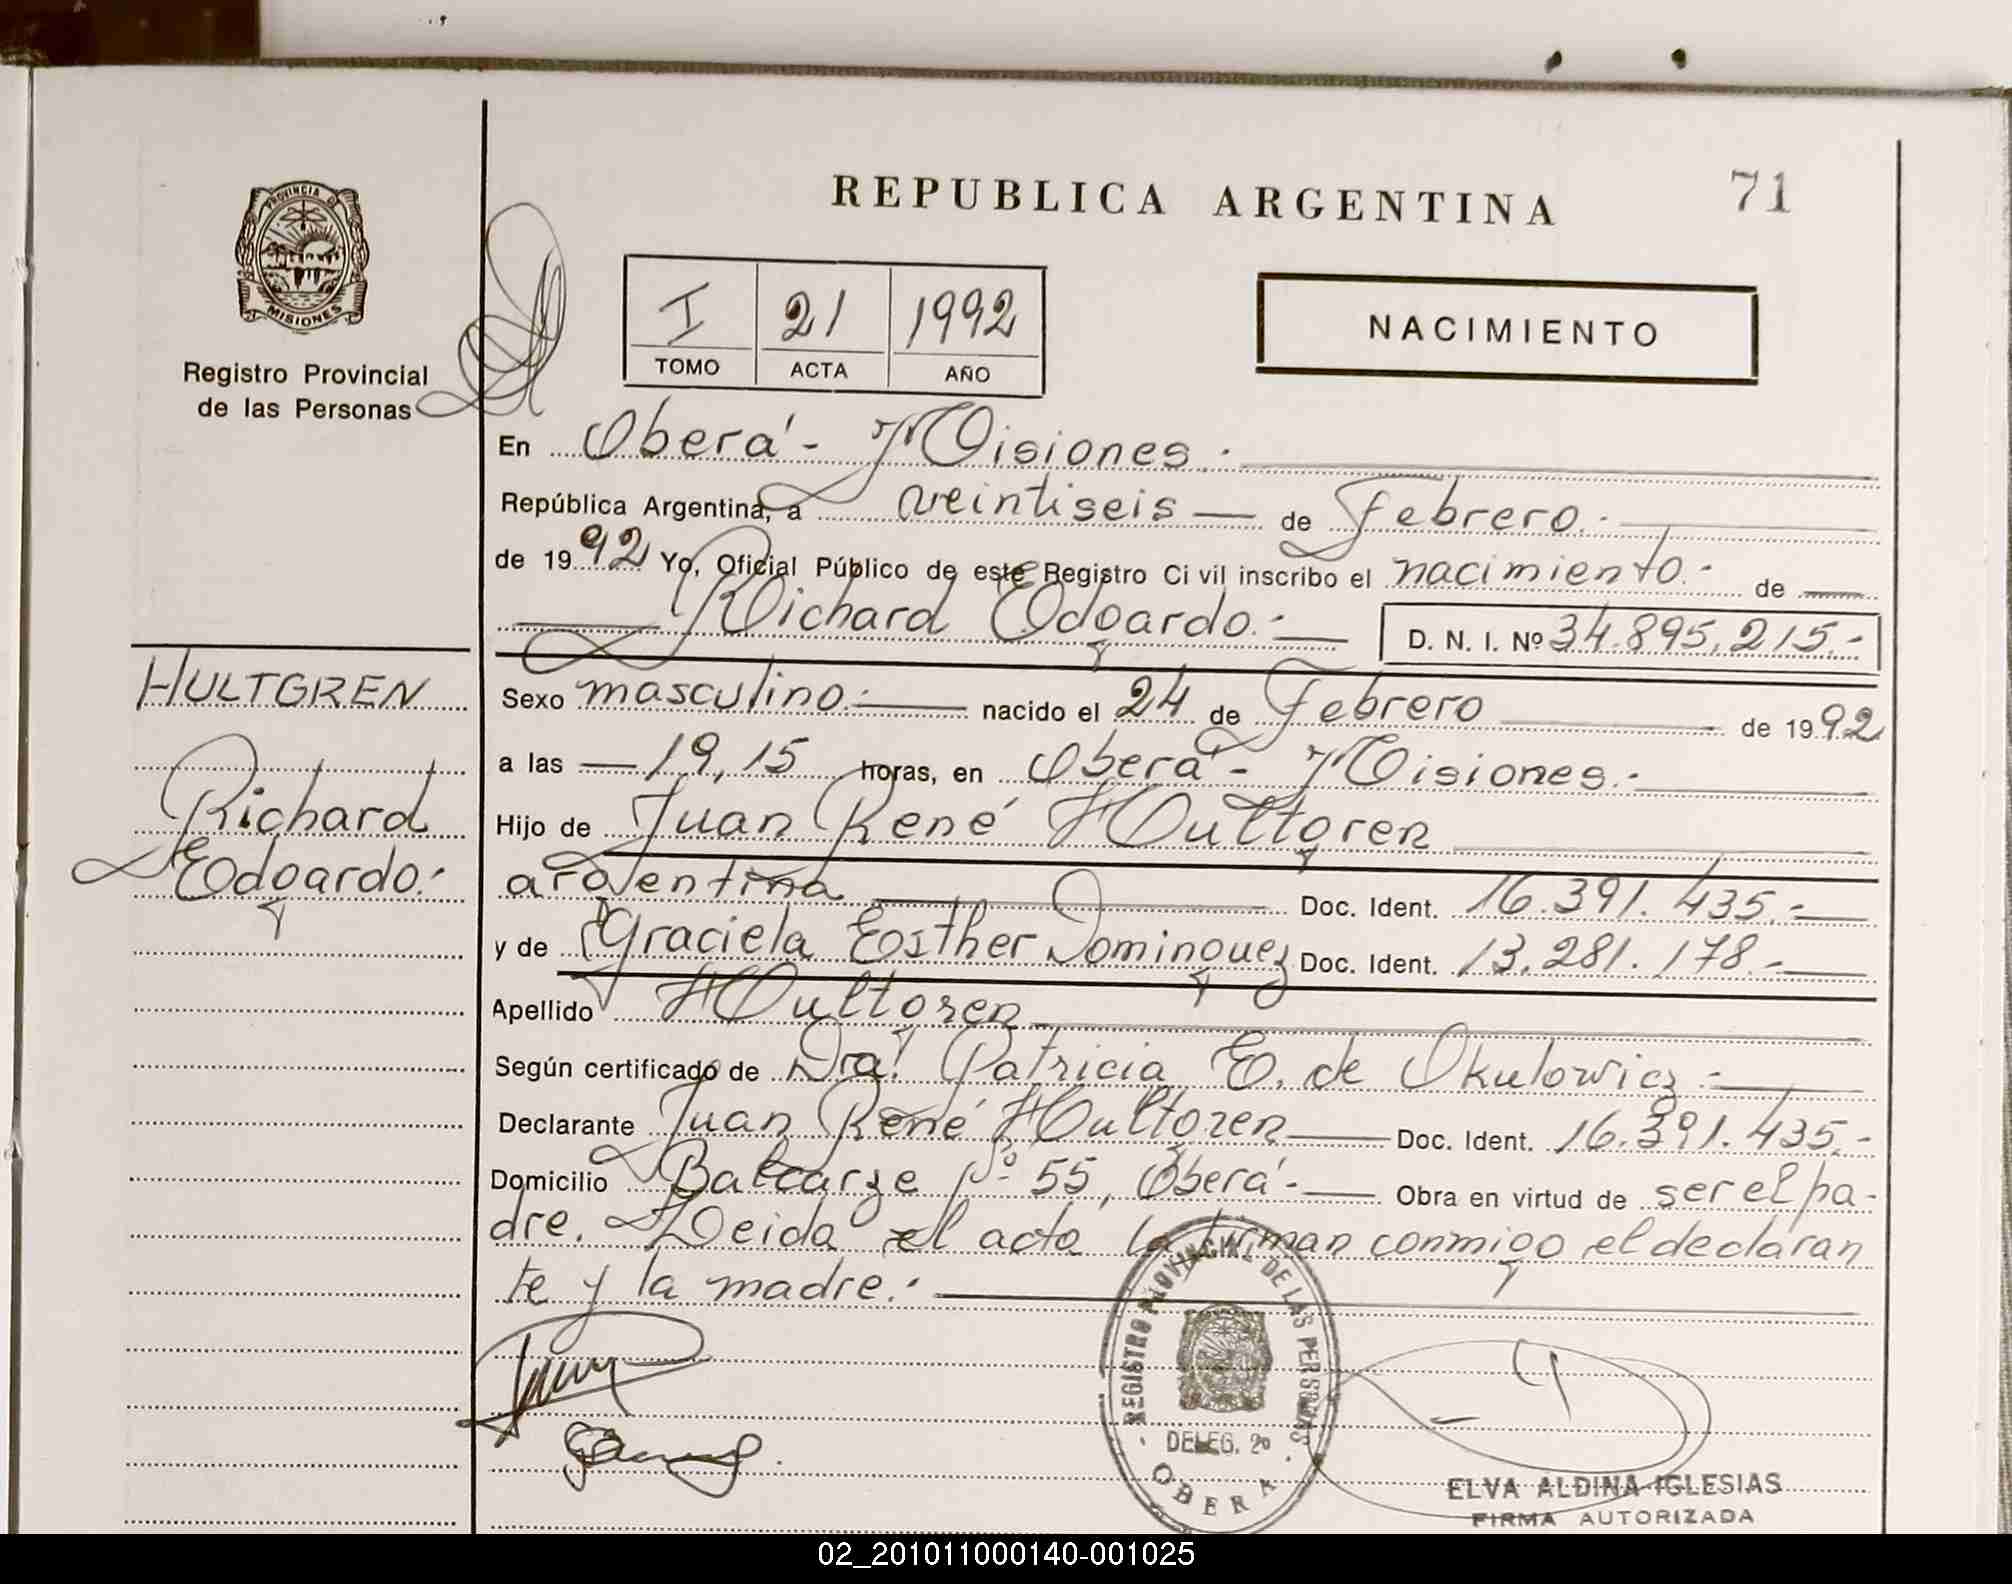 REPUBLICA ARGENTINA
71
PROVINCIA D
MISIONES
Registro Provincial
de las Personas
I 21 1992
TOMO ACTA AÑO
NACIMIENTO
En Oberá - Misiones.
República Argentina, a veintiseis — de Febrero.-
de 1992 Yo, Oficial Público de este Registro Civil inscribo el nacimiento.- de
Richard Edgardo.- D. N. I. Nº 34.895.215.-
HULTGREN
Richard
Edgardo.-
Sexo masculino.- nacido el 24 de Febrero de 1992
a las — 19,15 horas, en Oberá - Misiones.-
Hijo de Juan René Hultgren
argentina Doc. Ident. 16.391.435.-
y de Graciela Esther Dominguez Doc. Ident. 13.281.178.-
Apellido Hultgren
Según certificado de Dra. Patricia E. de Okulowicz.-
Declarante Juan René Hultgren — Doc. Ident. 16.391.435.-
Domicilio Balcarze Nº 55, Oberá.- Obra en virtud de ser el pa-
dre. Leida el acta la firman conmigo el declaran
te y la madre.-
REGISTRO PROVINCIAL DE LAS PERSONAS
DELEG. 2º
OBERA
ELVA ALDINA IGLESIAS
FIRMA AUTORIZADA
02_201011000140-001025